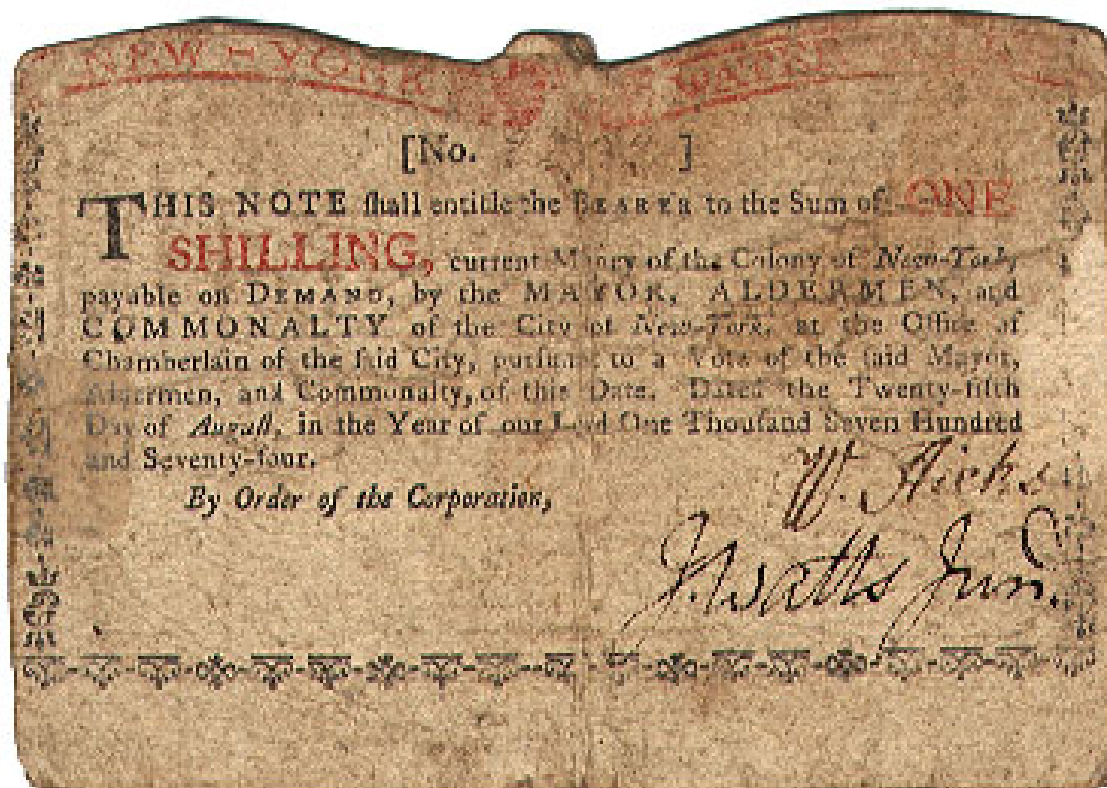 NEW-YORK WATER
[No. ]
THIS NOTE ſhall entitle the BEARER to the Sum of ONE
SHILLING, current Money of the Colony of New-York,
payable on DEMAND, by the MAYOR, ALDERMEN, and
COMMONALTY of the City of New-York, at the Office of
Chamberlain of the ſaid City, purſuant to a Vote of the ſaid Mayor,
Aldermen, and Commonalty, of this Date. Dated the Twenty-fifth
Day of Auguſt, in the Year of our Lord One Thouſand Seven Hundred
and Seventy-four.
By Order of the Corporation,
W. Hicks
J. Watts Jun.